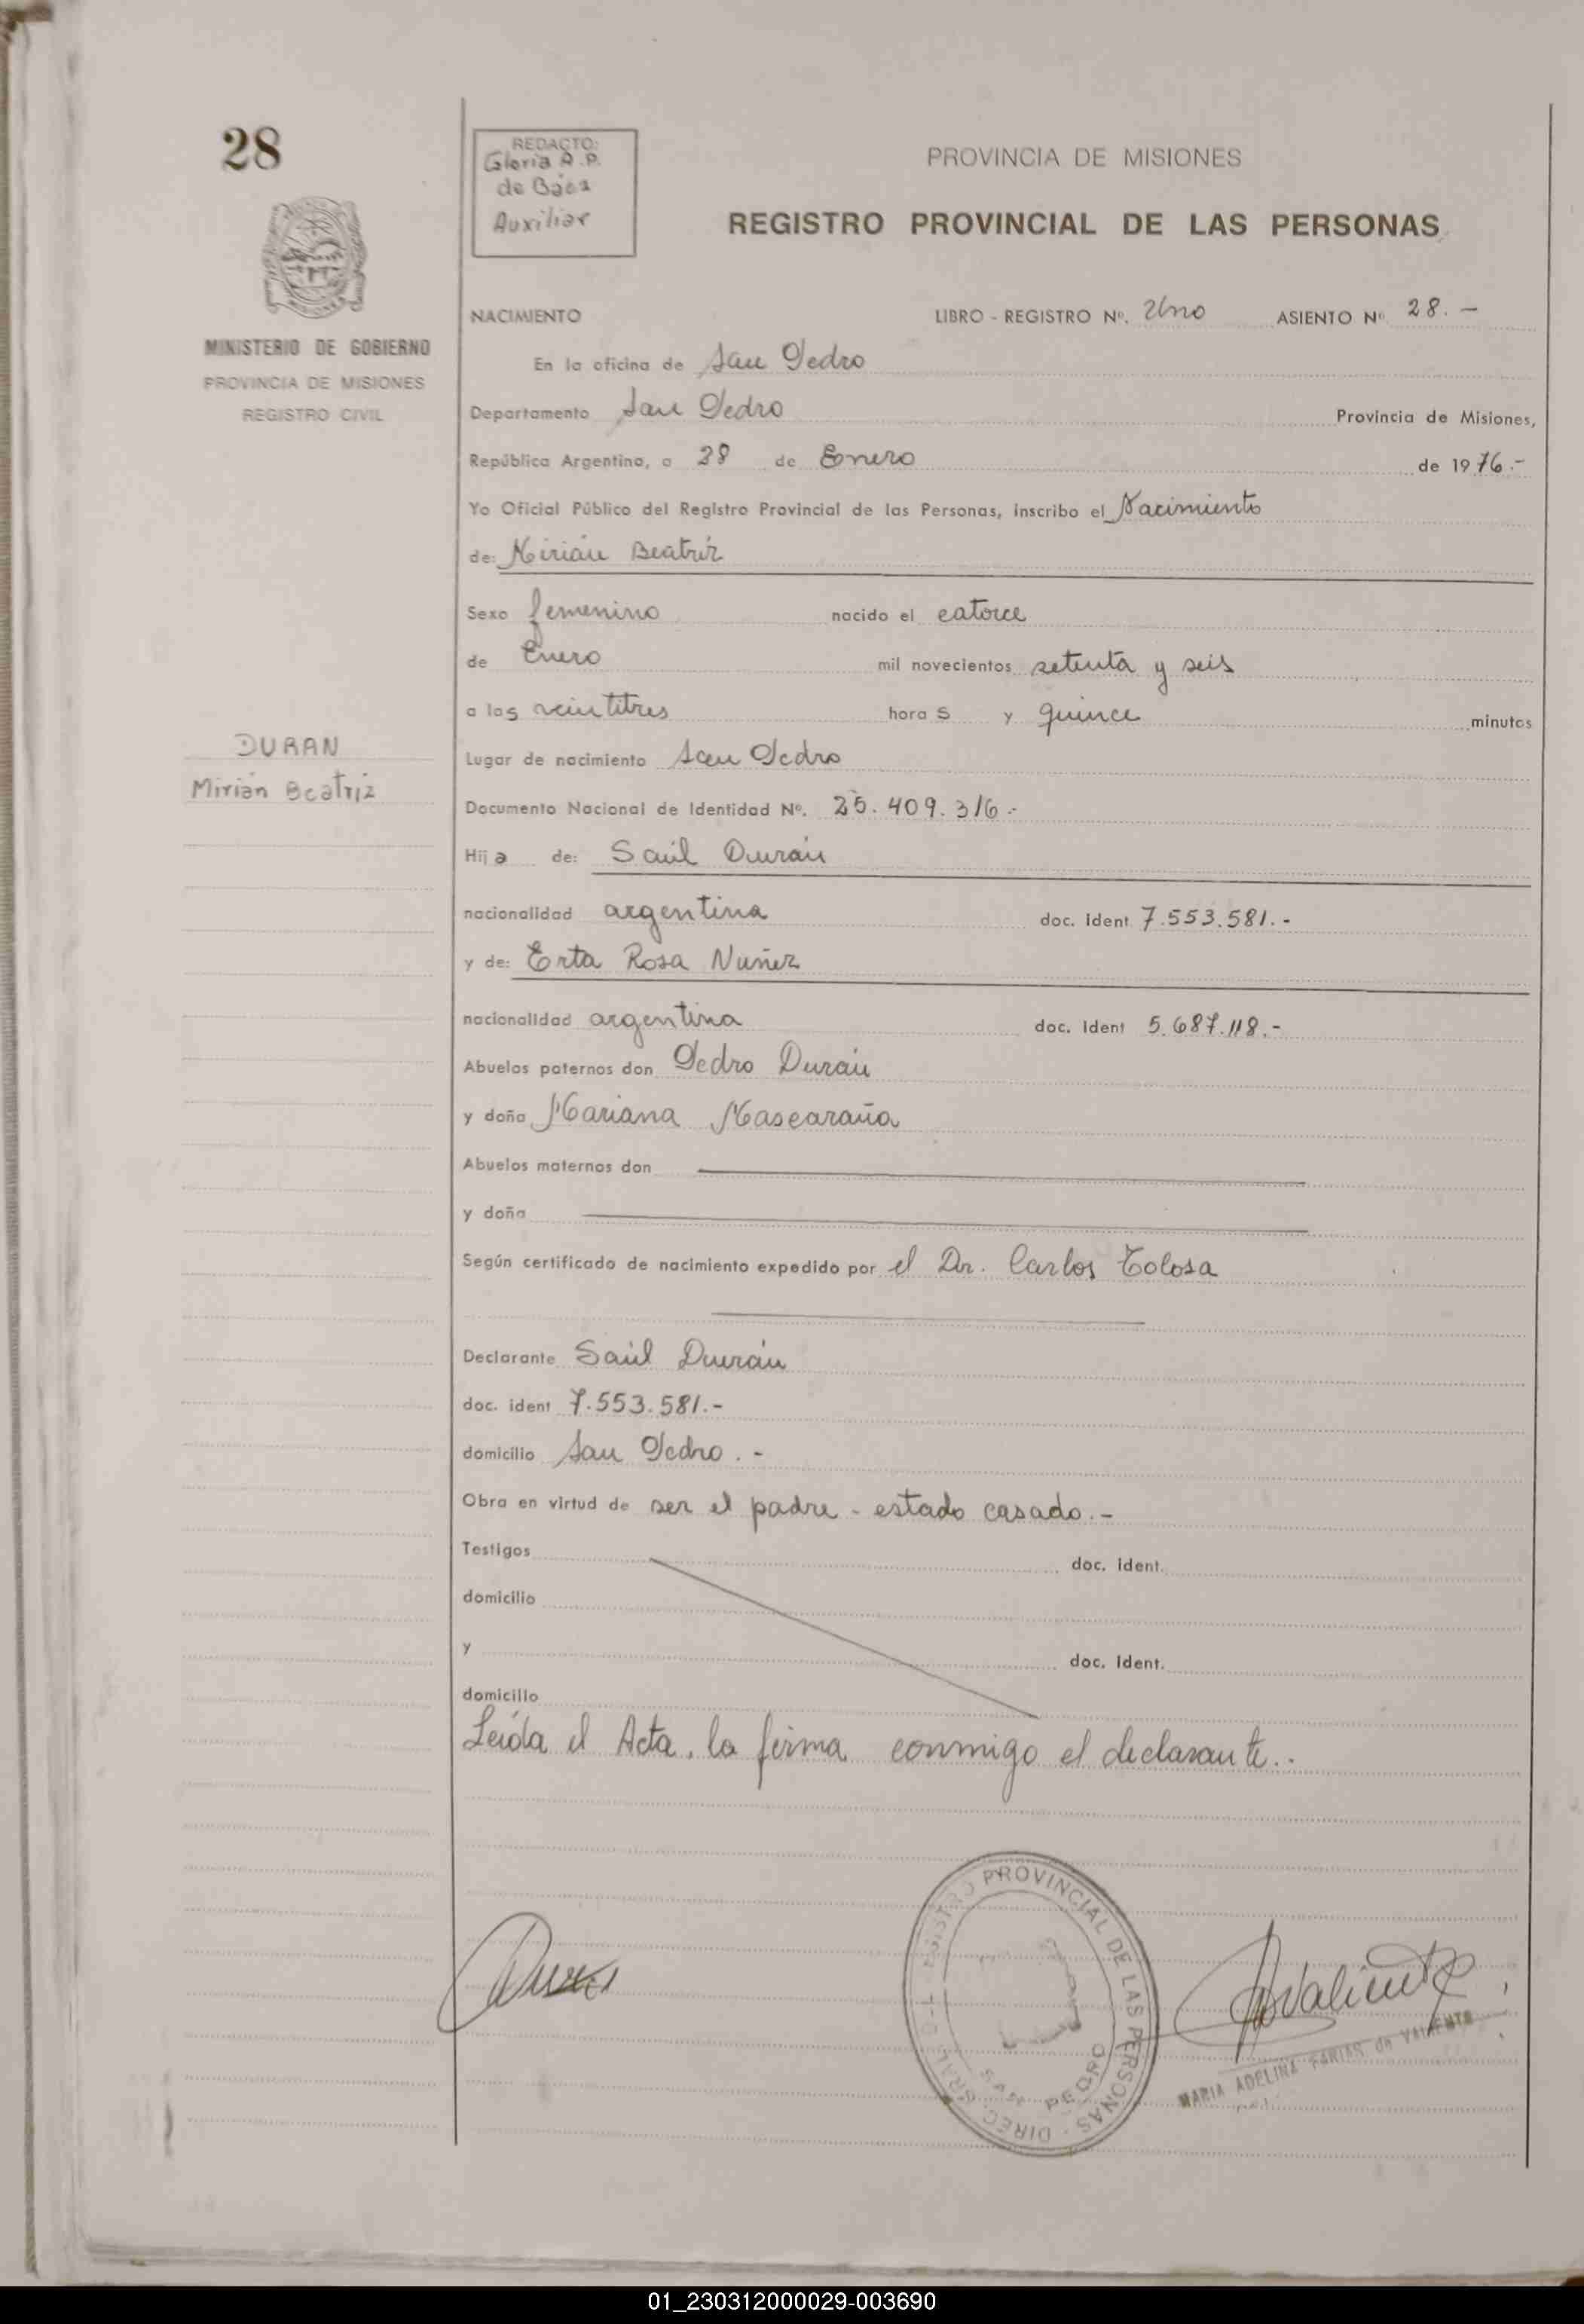 28
REDACTO:
Gloria A.P.
de Báez
Auxiliar
PROVINCIA DE MISIONES
REGISTRO PROVINCIAL DE LAS PERSONAS
MINISTERIO DE GOBIERNO
PROVINCIA DE MISIONES
REGISTRO CIVIL
NACIMIENTO LIBRO - REGISTRO Nº. Uno ASIENTO Nº 28. -
En la oficina de San Pedro
Departamento San Pedro Provincia de Misiones,
República Argentina, a 28 de Enero de 1976.-
Yo Oficial Público del Registro Provincial de las Personas, inscribo el Nacimiento
de: Mirián Beatríz
Sexo femenino nacido el catorce
de Enero mil novecientos setenta y seis
a las veintitres horas y quince minutos
DURAN
Mirián Beatriz
Lugar de nacimiento San Pedro
Documento Nacional de Identidad Nº. 25.409.316.-
Hija de: Saúl Durán
nacionalidad argentina doc. ident 7.553.581.-
y de: Erta Rosa Nuñez
nacionalidad argentina doc. ident 5.687.118.-
Abuelos paternos don Pedro Durán
y doña Mariana Mascaraña
Abuelos maternos don
y doña
Según certificado de nacimiento expedido por el Dr. Carlos Tolosa
Declarante Saúl Durán
doc. ident 7.553.581.-
domicilio San Pedro. -
Obra en virtud de ser el padre - estado casado.-
Testigos doc. ident.
domicilio
y doc. ident.
domicilio
Leída el Acta, la firma conmigo el declarante..
REGISTRO PROVINCIAL DE LAS PERSONAS - DIREC. GRAL.
SAN PEDRO
MARIA ADELINA FARIAS de VALIENTE
01_230312000029-003690